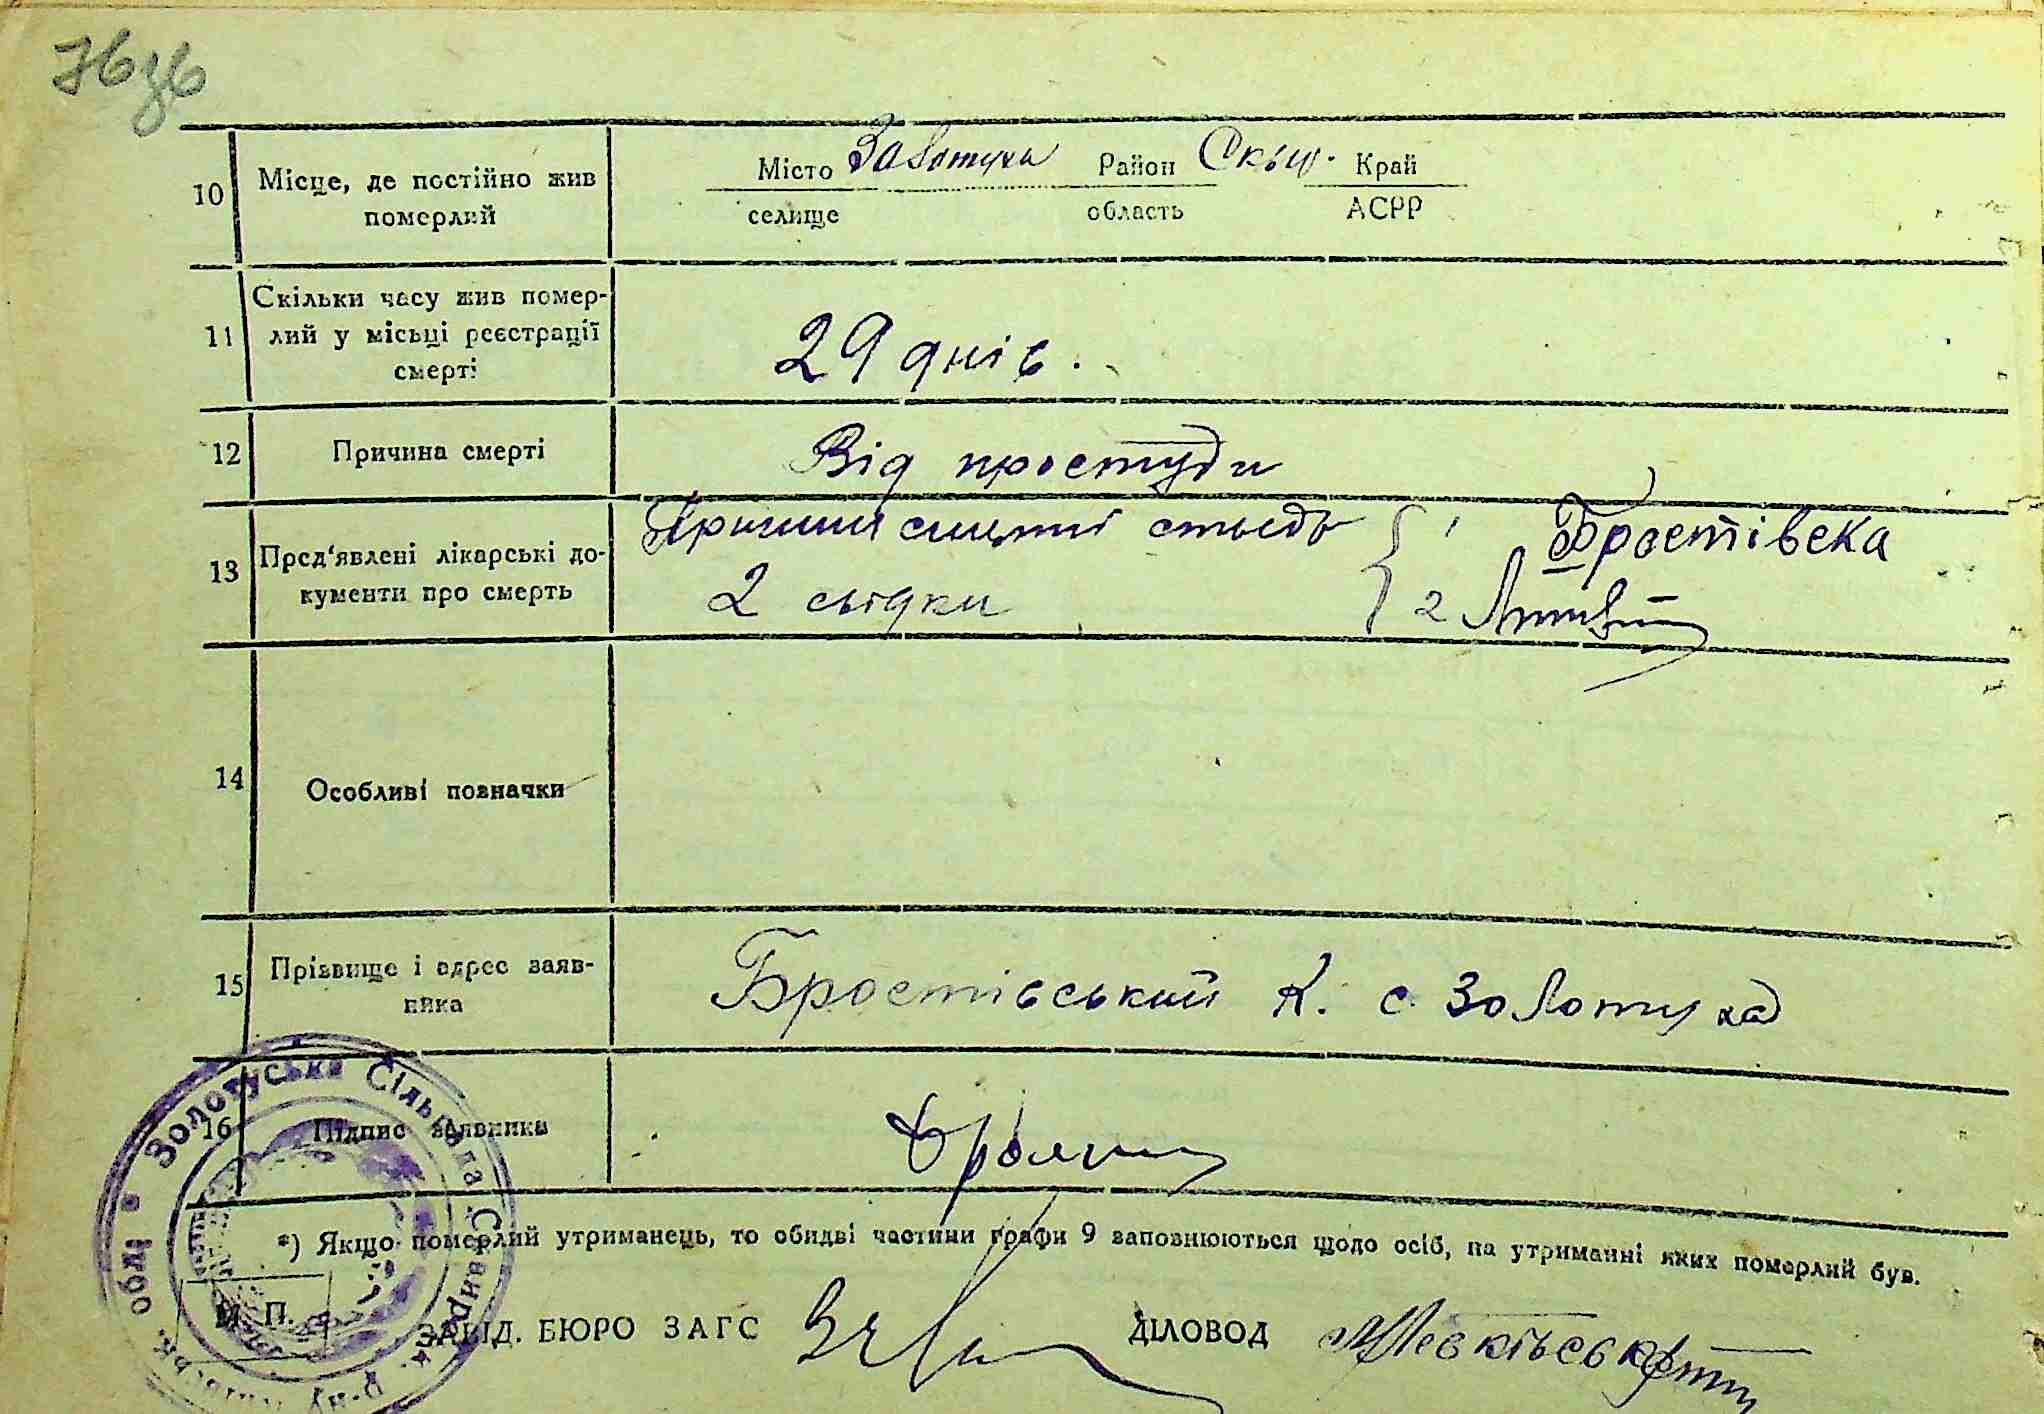 10
Місце, де постійно жив
померлий
Місто Золотуха Район Сквир. Край
селище область АСРР
11
Скільки часу жив помер-
лий у місьці реєстрації
смерті
29 днів.
12
Причина смерті
Від простуди
13
Пред'явлені лікарські до-
кументи про смерть
смерті
2 свідки
1 Бростівска
2
14
Особливі позначки
15
Прізвище і адрес заяв-
ника
Бростівський К. с Золотуха
16
Підпис заявника
*) Якщо померлий утриманець, то обидві частини графи 9 заповнюються щодо осіб, на утриманні яких померлий був.
М. П.
ЗАВІД. БЮРО ЗАГС
ДІЛОВОД
Золотуська Сільрада